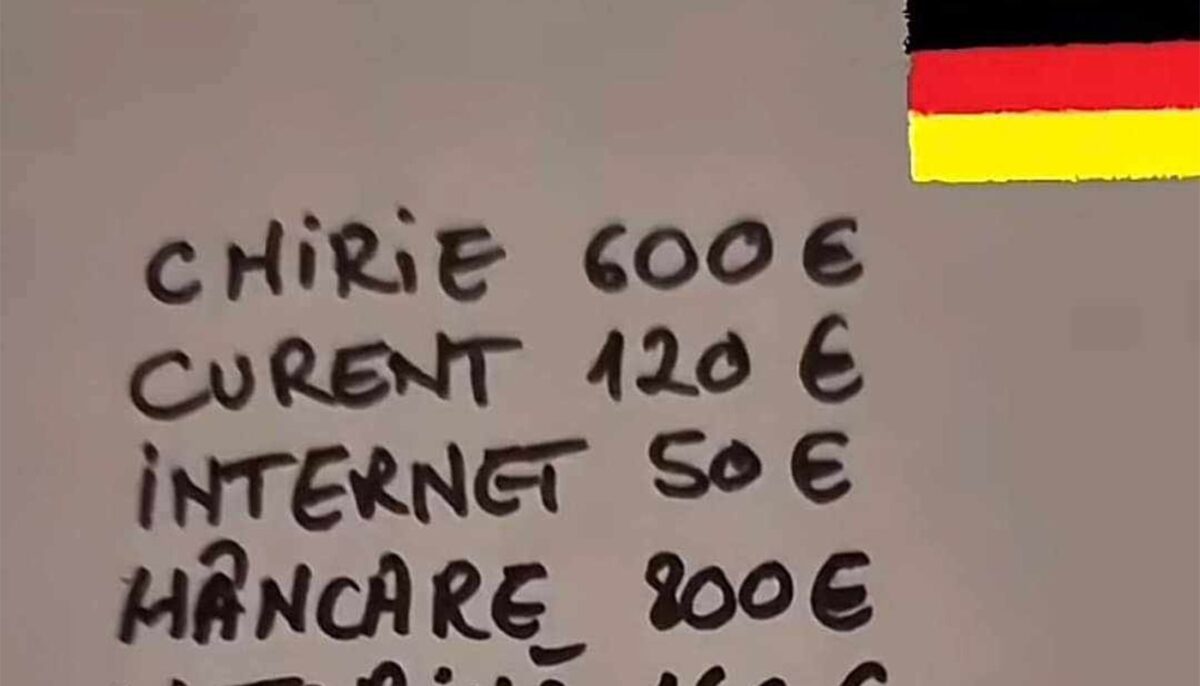 CHiRiE 600 €
CURENT 120 €
iNTERNET 50 €
MÂNCARE 800 €